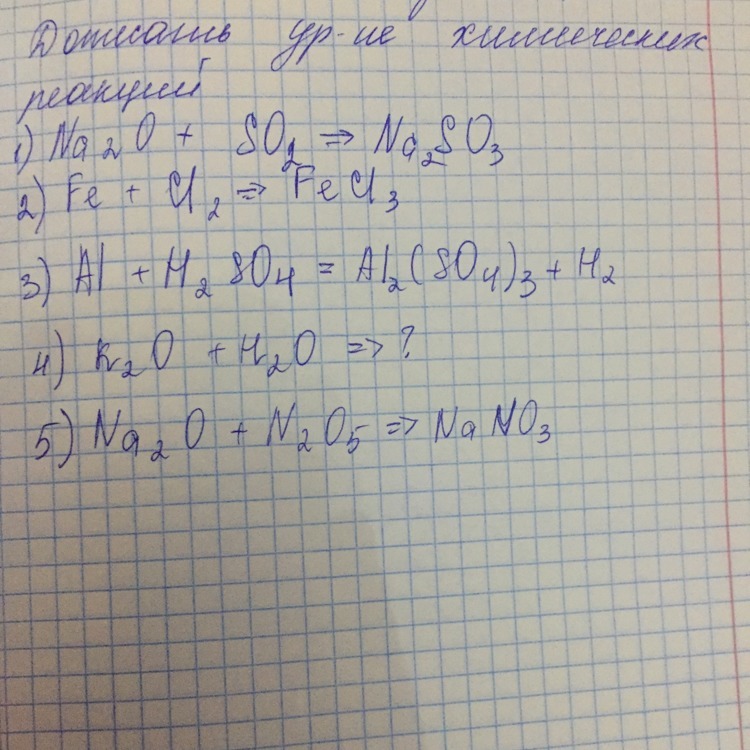 Дописать ур-ие химических
реакций
1) Na₂O + SO₂ => Na₂SO₃
2) Fe + Cl₂ => FeCl₃
3) Al + H₂SO₄ = Al₂(SO₄)₃ + H₂
4) K₂O + H₂O => ?
5) Na₂O + N₂O₅ => NaNO₃